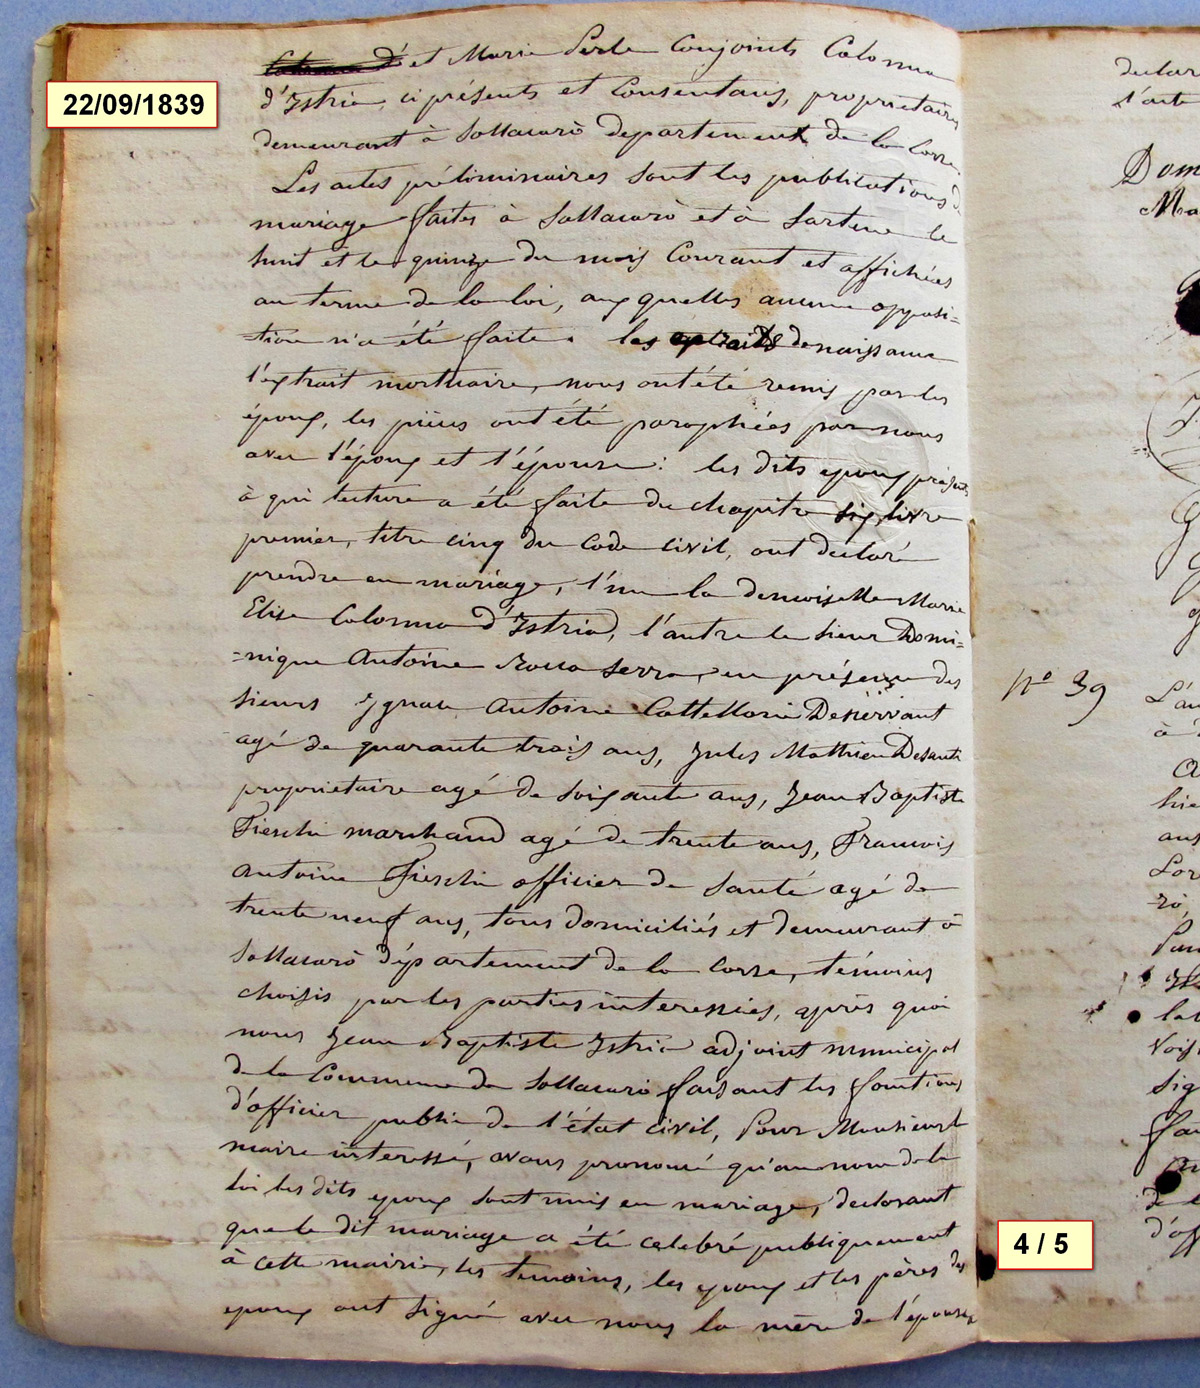 22/09/1839
et Marie Perle Conjoints Colonna
d'Istria, ci présents et Consentans, proprietaires
demeurant à Sollacarò departement de la Corse.
Les actes préliminaires sont les publications de
mariage faites à Sollacarò et à Sartene le
huit et le quinze du mois Courant et affichées
au terme de la loi, auxquelles aucune opposi=
=tion n'a été faite. les extraits de naissance
l'extrait mortuaire, nous ont été remis par les
époux, les pièces ont été paraphées par nous
avec l'époux et l'épouse: les dits epoux présents
à qui lecture a été faite du chapitre six, livre
premier, titre cinq du Code Civil, ont declaré
prendre en mariage, l'un la demoiselle Marie
Elise Colonna d'Istria, l'autre le sieur Domi=
=nique Antoine Rocca Serra, en présence des
sieurs Ignace Antoine Cattellorie Desservant
agé de quarante trois ans, Jules Mathieu Desanti
proprietaire agé de soixante ans, Jean Baptiste
Fieschi marchand agé de trente ans, Francois
Antoine Fieschi officier de santé agé de
trente neuf ans, tous domiciliés et demeurant à
Sollacarò département de la Corse, témoins
choisis par les parties interessées, après quoi
nous Jean Baptiste Istria adjoint municipal
de la Commune de Sollacarò faisant les fonctions
d'officier public de l'état civil, Pour Monsieur le
maire interessé, avons prononcé qu'au nom de la
loi les dits epoux sont unis en mariage, declarant
que le dit mariage a été celebré publiquement
à cette mairie, les temoins, les epoux et les pères des
epoux ont signé avec nous la mère de l'épouse
declar
l'acte
Dom
Ma
N° 39
L'an
à
hie
ans
rò,
4 / 5
d'off